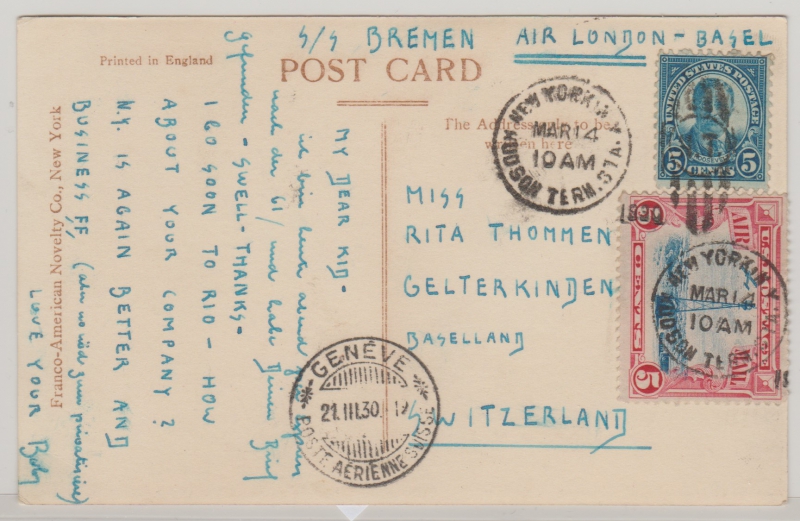 S/S BREMEN AIR LONDON - BASEL
Printed in England
POST CARD
The Address only to be
written here
Franco-American Novelty Co., New York
MY DEAR KID -
ich bin heute abend
nach der 61/ und habe Deinen Brief
gefunden - SWELL - THANKS -
I GO SOON TO RIO - HOW
ABOUT YOUR COMPANY?
N.Y. IS AGAIN BETTER AND
BUSINESS FF,
LOVE YOUR Boby
MISS
RITA THOMMEN
GELTERKINDEN
BASELLAND
SWITZERLAND
NEW YORK N.Y.
MAR 14
10 AM
HUDSON TERM. STA.
1930
UNITED STATES POSTAGE
5 CENTS 5
NEW YORK N.Y.
MAR 14
10 AM
HUDSON TERM
U.S. POSTAGE
AIR MAIL
5 CENTS
GENÈVE
21.III.30.
POSTE AÉRIENNE SUISSE